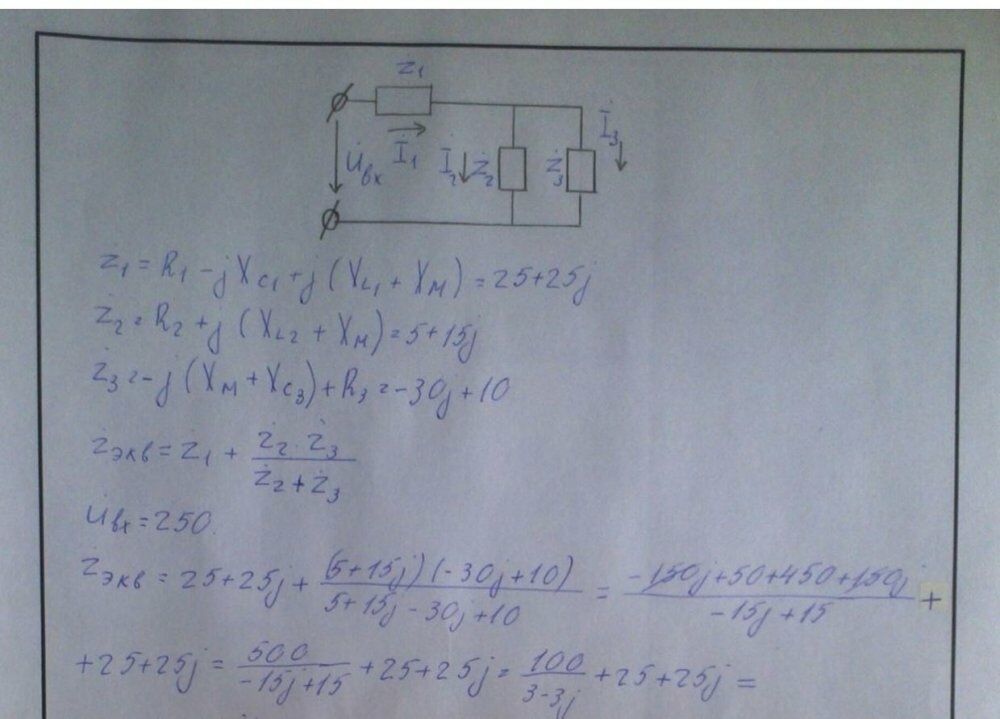 Z1
U̇вх İ1 İ2 Ż2 Ż3 İ3
Ż1 = R1 - jXC1 + j(XL1 + XM) = 25+25j
Ż2 = R2 + j(XL2 + XM) = 5+15j
Ż3 = -j(XM + XC3) + R3 = -30j+10
Żэкв = Ż1 + Ż2·Ż3 / Ż2+Ż3
U̇вх = 250.
Żэкв = 25+25j + (5+15j)(-30j+10) / 5+15j-30j+10 = -150j+50+450+150j / -15j+15 +
+25+25j = 500 / -15j+15 +25+25j = 100 / 3-3j +25+25j =